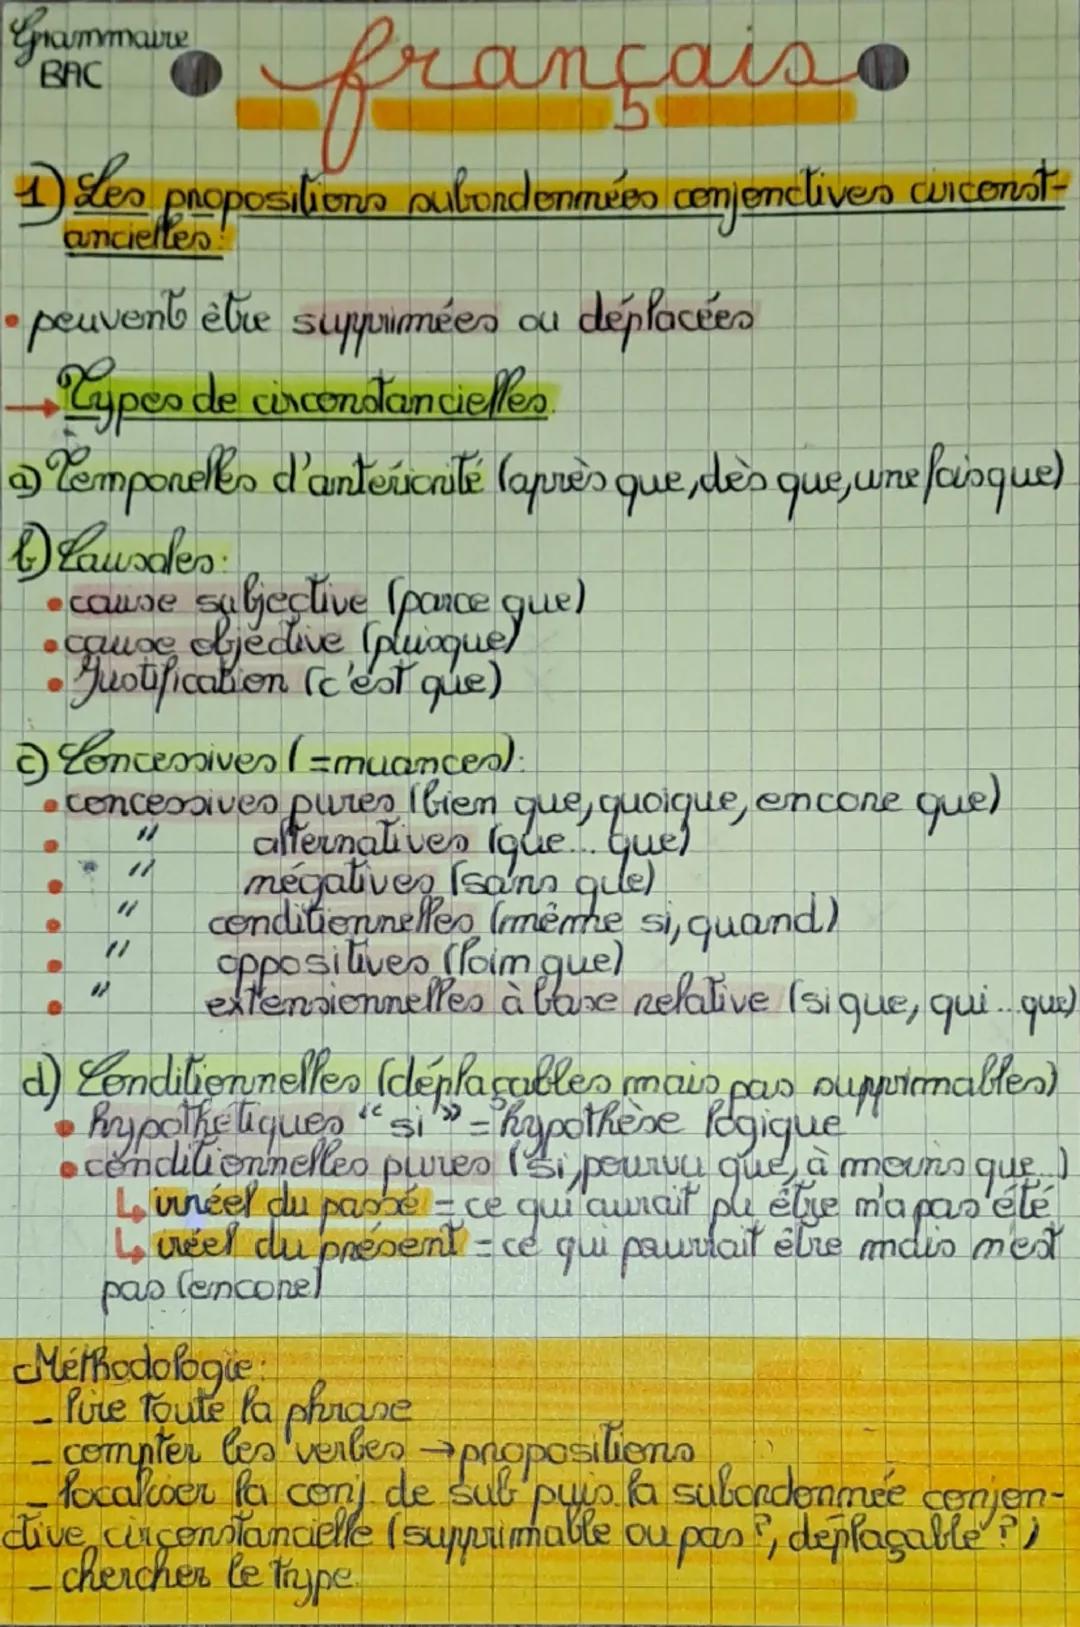 Grammaire
BAC
français
1) Les propositions subordonnées conjonctives circonst-
ancielles:
• peuvent être supprimées ou déplacées
→ Types de circonstancielles.
a) Temporelles d'antériorité (après que, dès que, une fois que)
b) Causales:
• cause subjective (parce que)
• cause objective (puisque)
• Justification (c'est que)
c) Concessives (=nuances):
• concessives pures (bien que, quoique, encore que)
• " alternatives (que... que)
• " négatives (sans que)
• " conditionnelles (même si, quand)
• " oppositives (loin que)
• " extensionnelles à base relative (si que, qui...que)
d) Conditionnelles (déplaçables mais pas supprimables)
• hypothétiques "si" = hypothèse logique
• conditionnelles pures (si, pourvu que, à moins que...)
↳ irréel du passé = ce qui aurait pu être n'a pas été
↳ iréel du présent = ce qui pourrait être mais n'est
pas (encore)
Méthodologie:
- lire toute la phrase
- compter les verbes → propositions
- localiser la conj. de sub puis la subordonnée conjon-
ctive circonstancielle (supprimable ou pas?, déplaçable?)
- chercher le type.